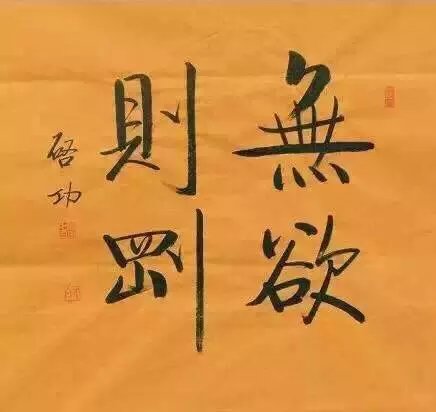 無欲
則剛
啓功